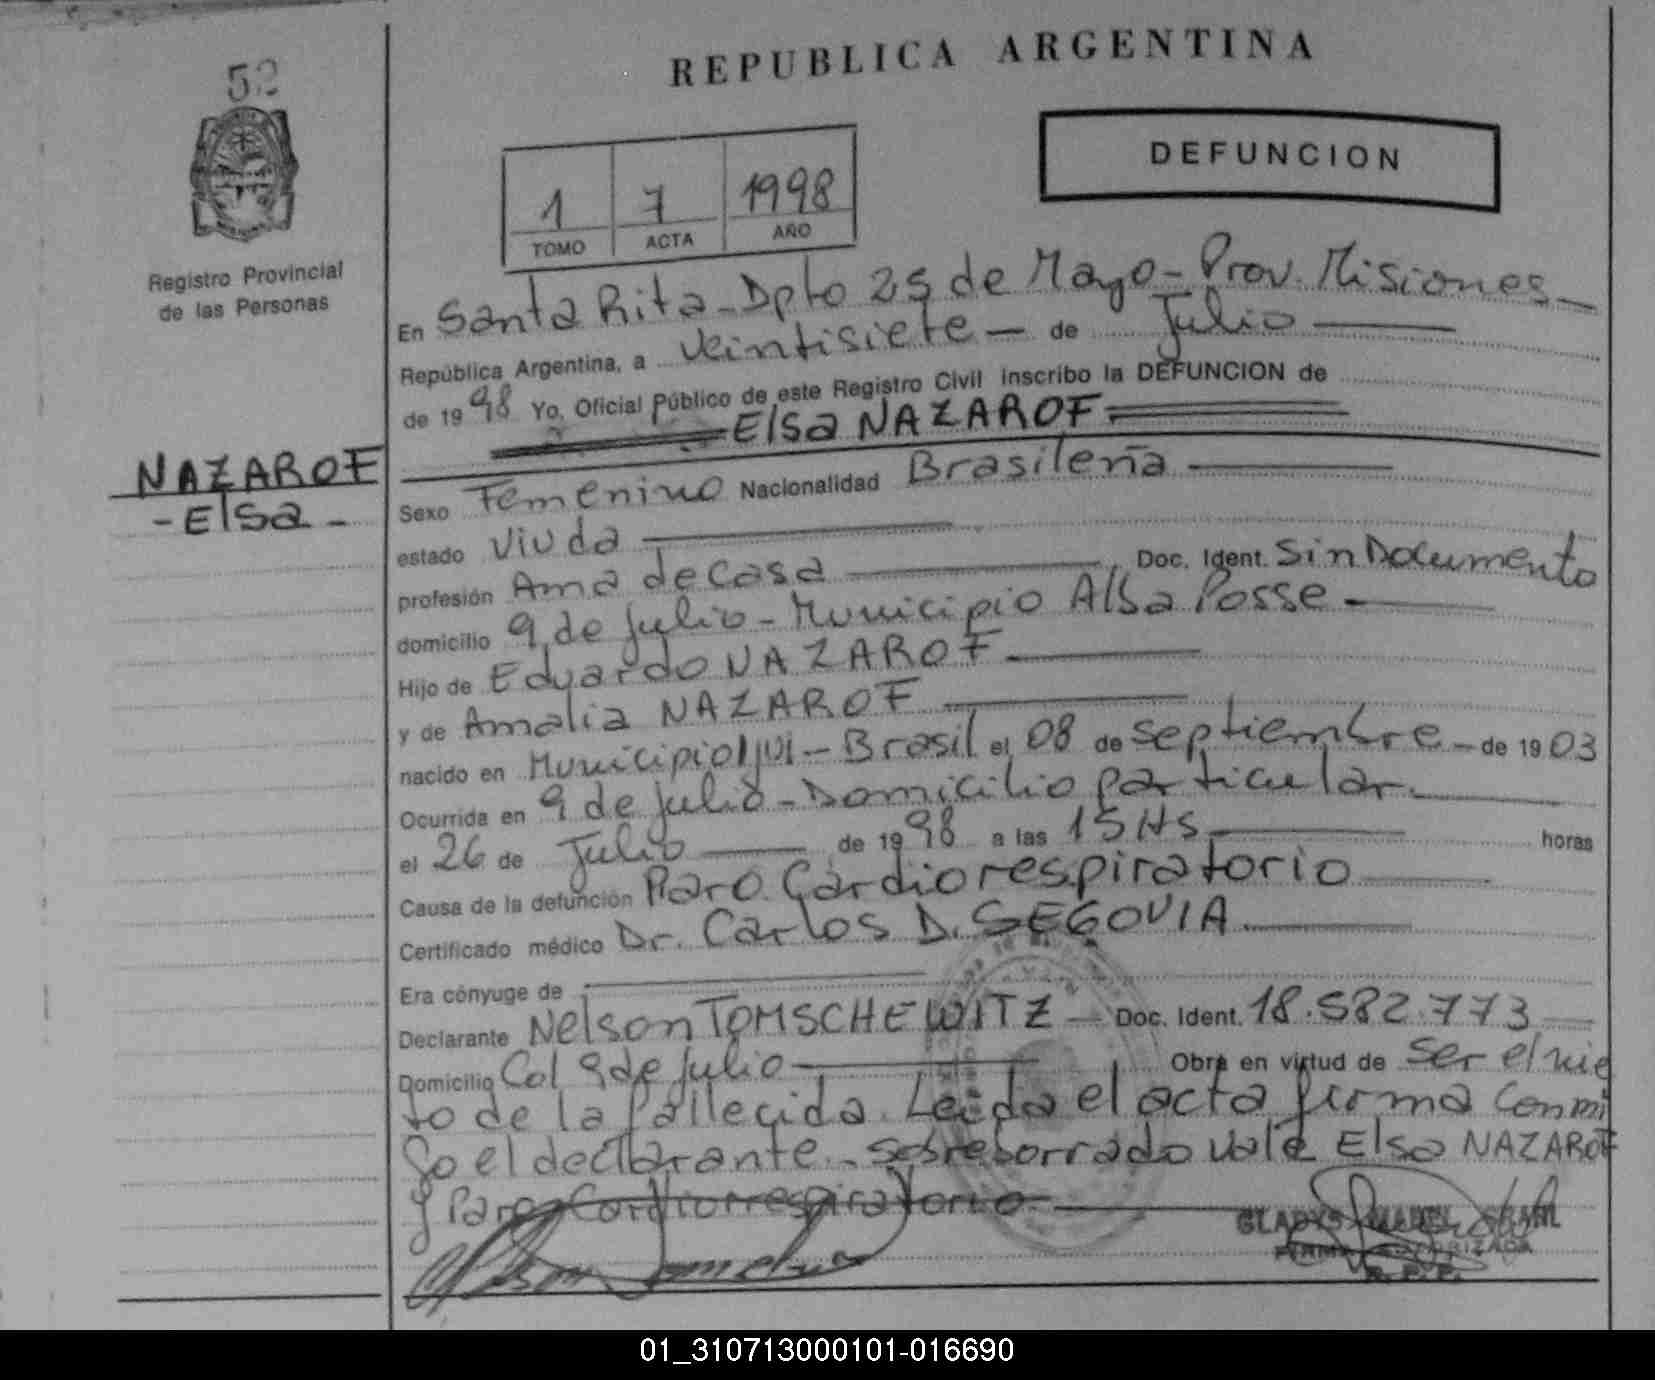 52
REPUBLICA ARGENTINA
DEFUNCION
1 7 1998
TOMO ACTA AÑO
Registro Provincial
de las Personas
En Santa Rita - Dpto 25 de Mayo - Prov. Misiones
República Argentina, a veintisiete - de Julio
de 1998 Yo, Oficial Público de este Registro Civil inscribo la DEFUNCION de
Elsa NAZAROF
NAZAROF
- Elsa -
Sexo Femenino Nacionalidad Brasileña
estado Viuda
profesión Ama de Casa Doc. Ident. Sin Documento
domicilio 9 de Julio - Municipio Alba Posse
Hijo de Eduardo NAZAROF
y de Amalia NAZAROF
nacido en Municipio Ijui - Brasil el 08 de septiembre - de 1903
Ocurrida en 9 de Julio - Domicilio particular.
el 26 de Julio de 1998 a las 15 Hs horas
Causa de la defunción Paro Cardiorespiratorio
Certificado médico Dr. Carlos D. SEGOVIA
Era cónyuge de
Declarante Nelson TOMSCHEWITZ Doc. Ident. 18.582.773
Domicilio Col 9 de Julio Obra en virtud de ser el nie
to de la fallecida. Leida el acta firma conmi
go el declarante. - sobreborrado vale Elsa NAZAROF
y Paro Cardiorrespiratorio
GLADYS
R. P. P.
01_310713000101-016690